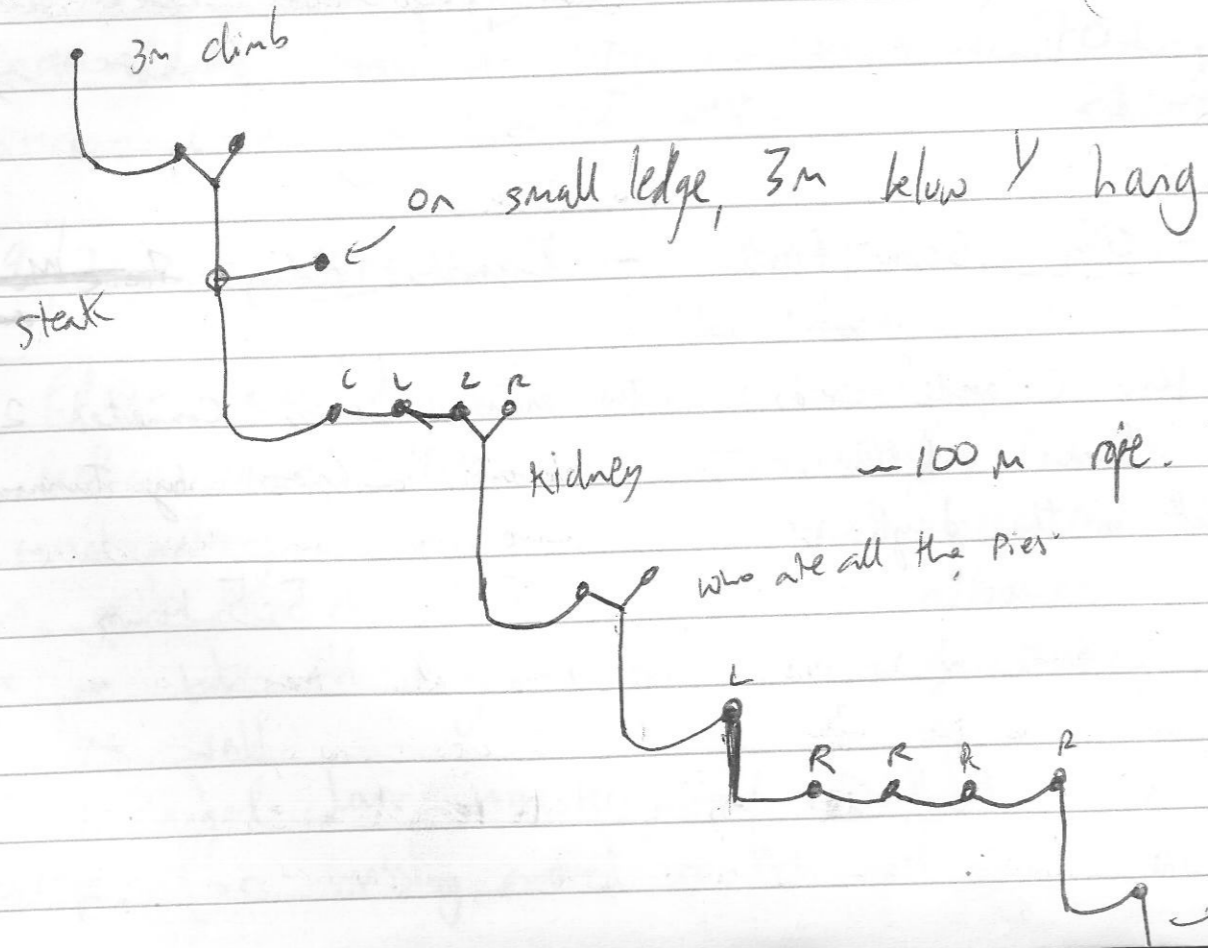 3m climb
on small ledge, 3m below Y hang
steak
L L L R
Kidney
~100m rope.
who ate all the Pies
L
R R R R